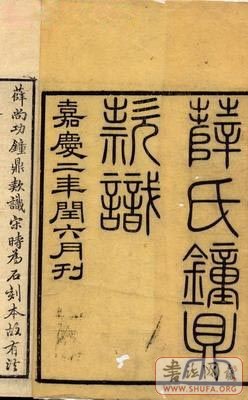 薛氏鐘鼎
款識
嘉慶二年閏六月刊
薛尚功鐘鼎款識宋時為石刻本故有法
书法网
WWW.SHUFA.ORG